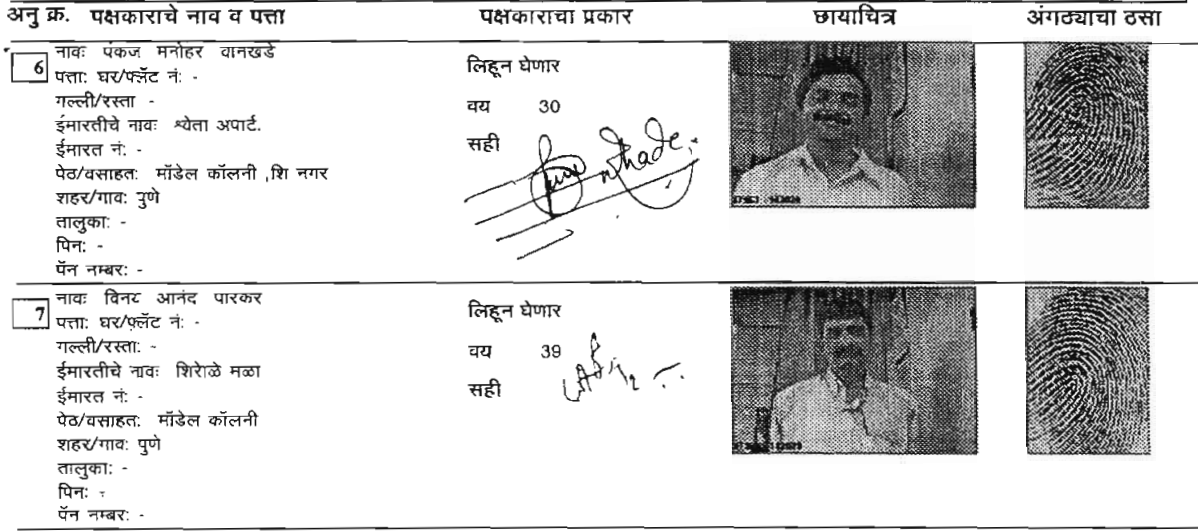 अनु क्र. पक्षकाराचे नाव व पत्ता पक्षकाराचा प्रकार छायाचित्र अंगठ्याचा ठसा
6
नावः पंकज मनोहर वानखडे
पत्ताः घर/फ्लॅट नंः -
गल्ली/रस्ता -
ईमारतीचे नावः श्वेता अपार्ट.
ईमारत नंः -
पेठ/वसाहतः मॉडेल कॉलनी ,शि नगर
शहर/गावः पुणे
तालुकाः -
पिनः -
पॅन नम्बरः -
लिहून घेणार
वय 30
सही
7
नावः विनय आनंद पारकर
पत्ताः घर/फ्लॅट नंः -
गल्ली/रस्ताः -
ईमारतीचे नावः शिरोळे मळा
ईमारत नंः -
पेठ/वसाहतः मॉडेल कॉलनी
शहर/गावः पुणे
तालुकाः -
पिनः -
पॅन नम्बरः -
लिहून घेणार
वय 39
सही